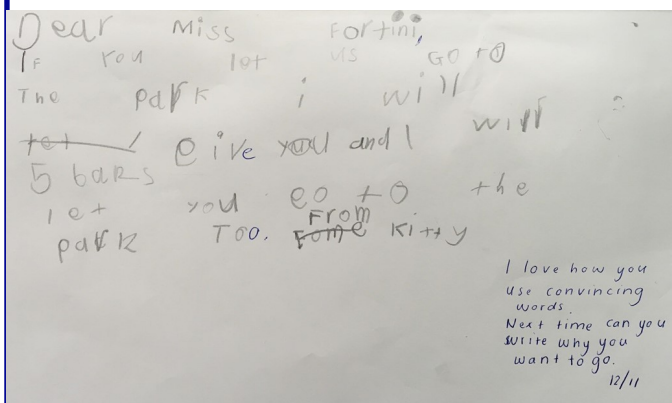 Dear Miss Fortini,
If you let us Go to
The park i will
tet eive you and I will
5 bars
let you eo to the
park Too. Fome From Kitty
I love how you
use convincing
words.
Next time can you
write why you
want to go.
12/11